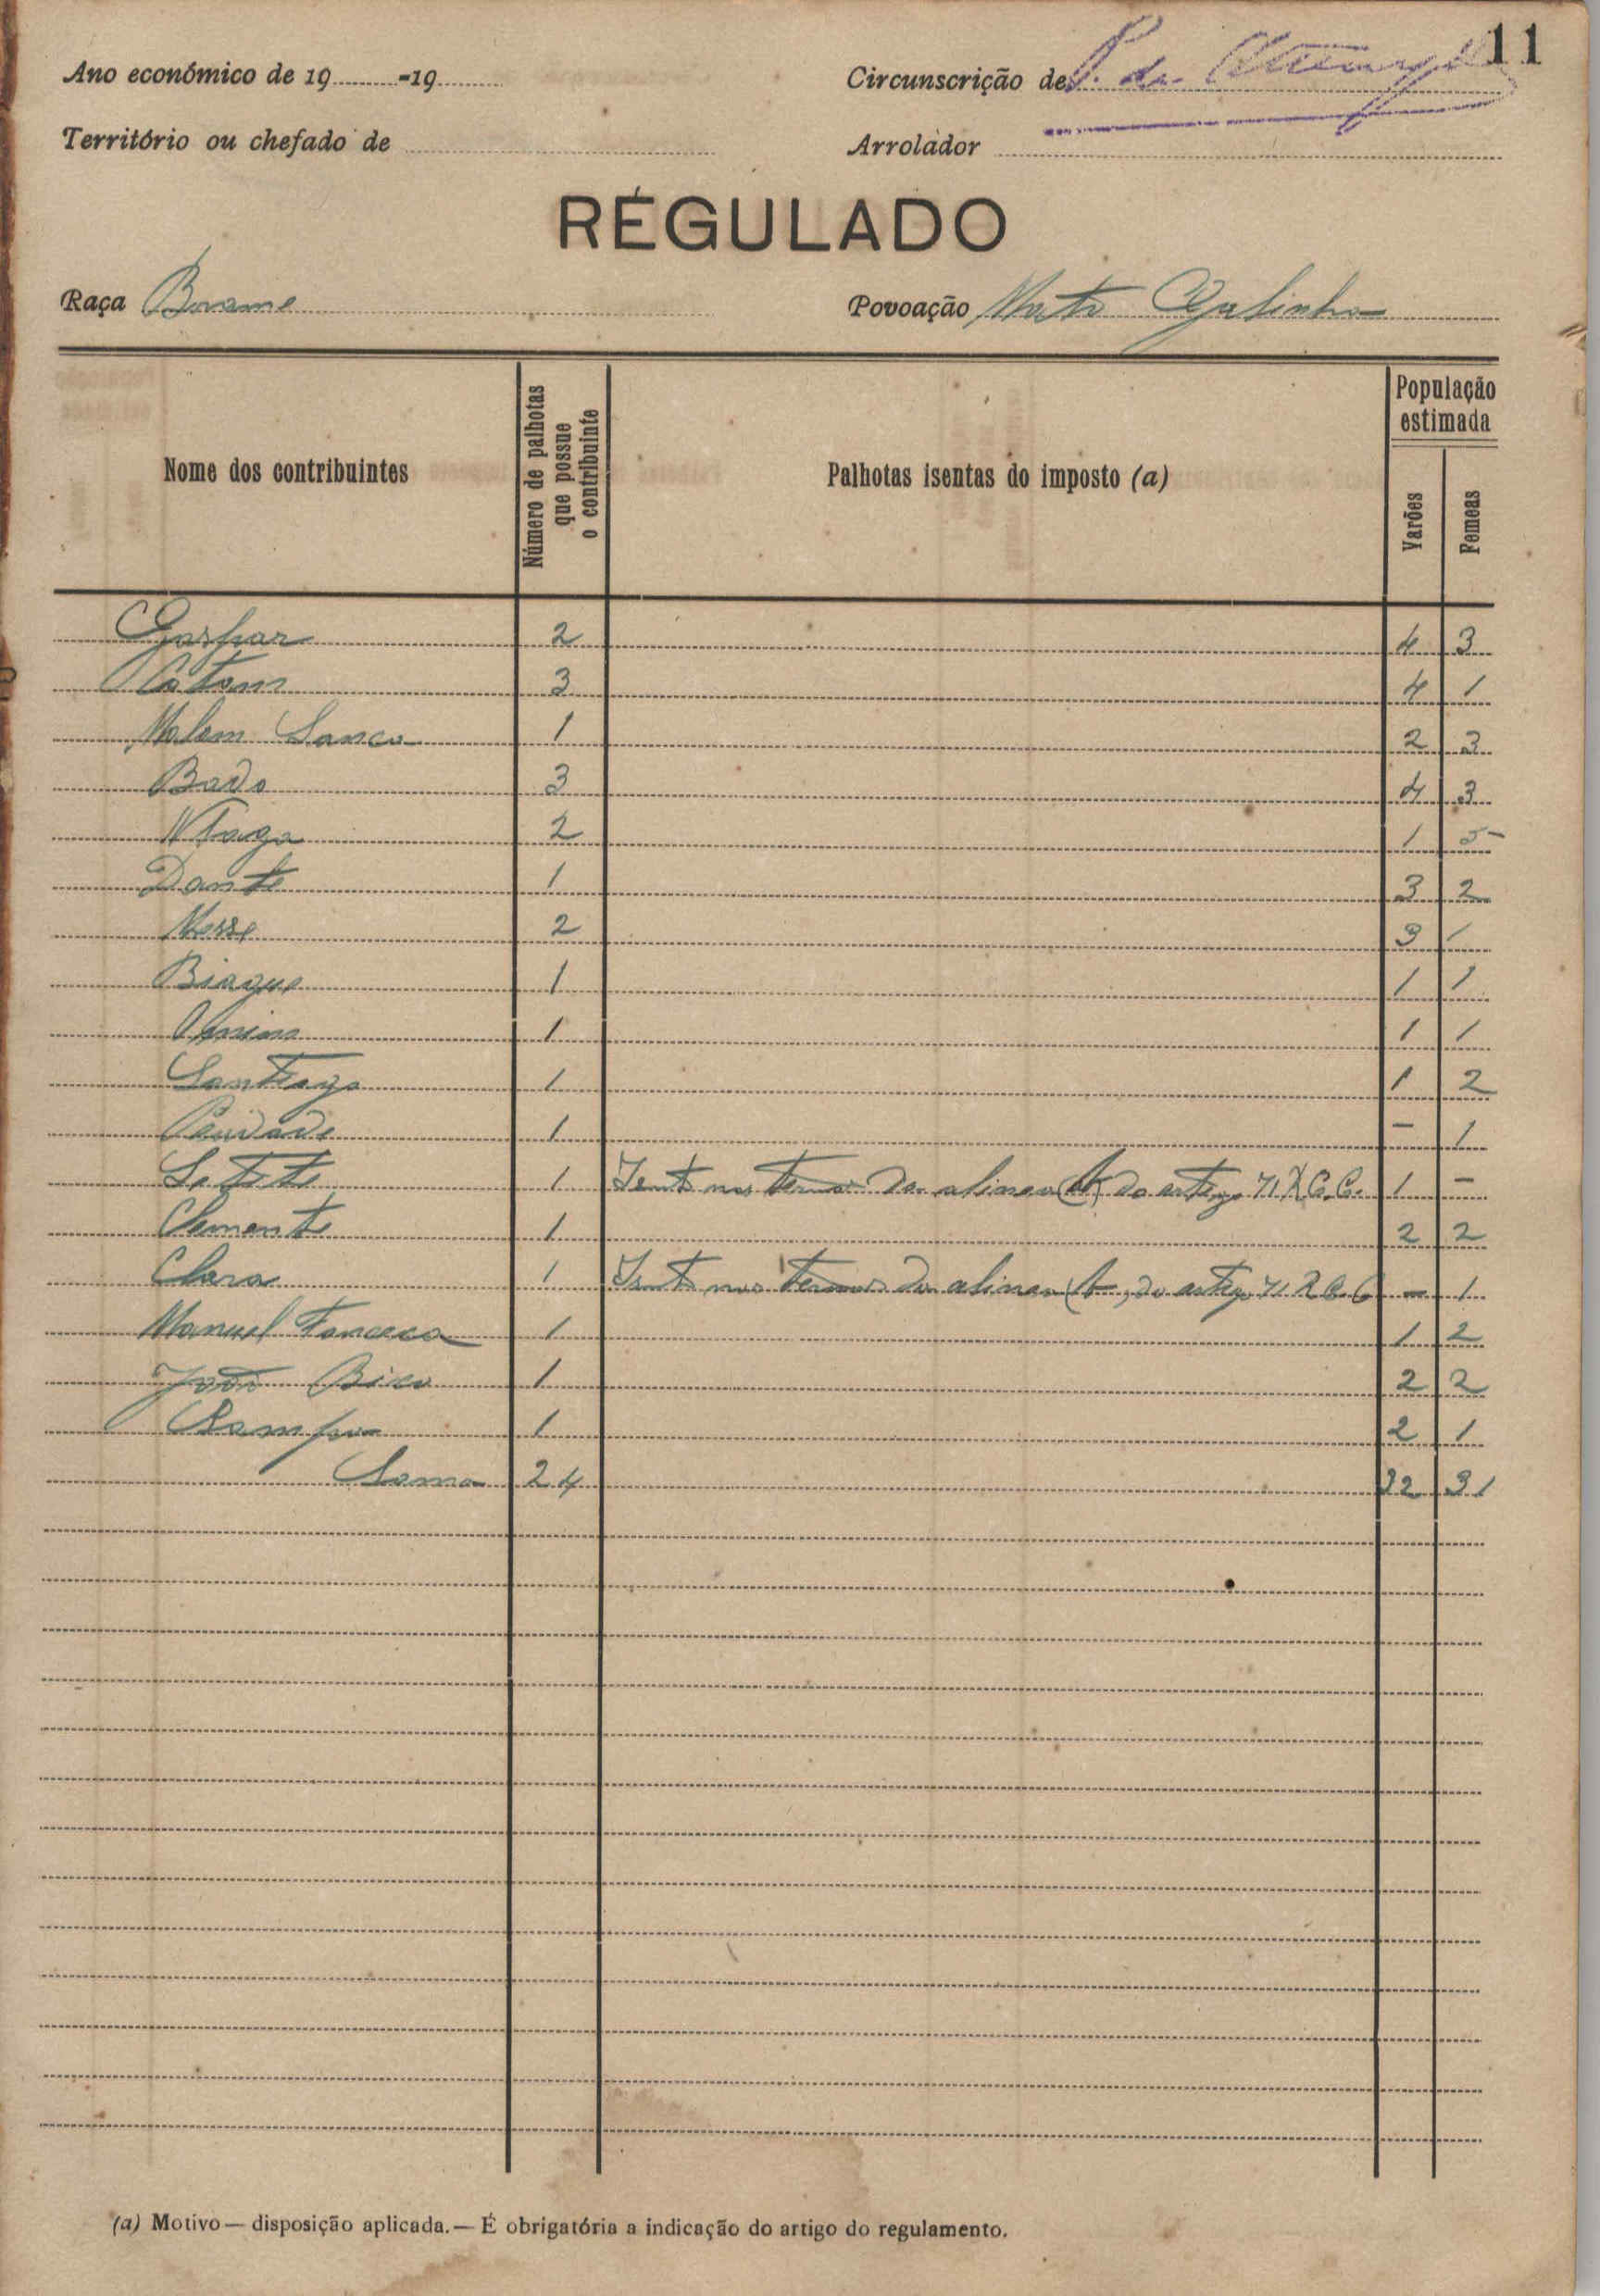 11
Ano económico de 19 -19 Circunscrição de
Território ou chefado de Arrolador
RÉGULADO
Raça Brame Povoação Mato Galinha
Nome dos contribuintes Número de palhotas que possue o contribuinte Palhotas isentas do imposto (a) População estimada Varões Femeas
Gaspar 2 4 3
3 4 1
Malam Sanca 1 2 3
Bado 3 4 3
Ntaga 2 1 5
Dante 1 3 2
2 3 1
Biague 1 1 1
1 1 1
Santiago 1 1 2
1 - 1
1 Isento nos termos da alinea do artigo 71 R.C.C. 1 -
Clemente 1 2 2
Clara 1 Isento nos termos da alinea do artigo 71 R C C - 1
Manuel Fonceca 1 1 2
João Bico 1 2 2
Sampa 1 2 1
Soma 24 32 31
(a) Motivo — disposição aplicada. — É obrigatória a indicação do artigo do regulamento.